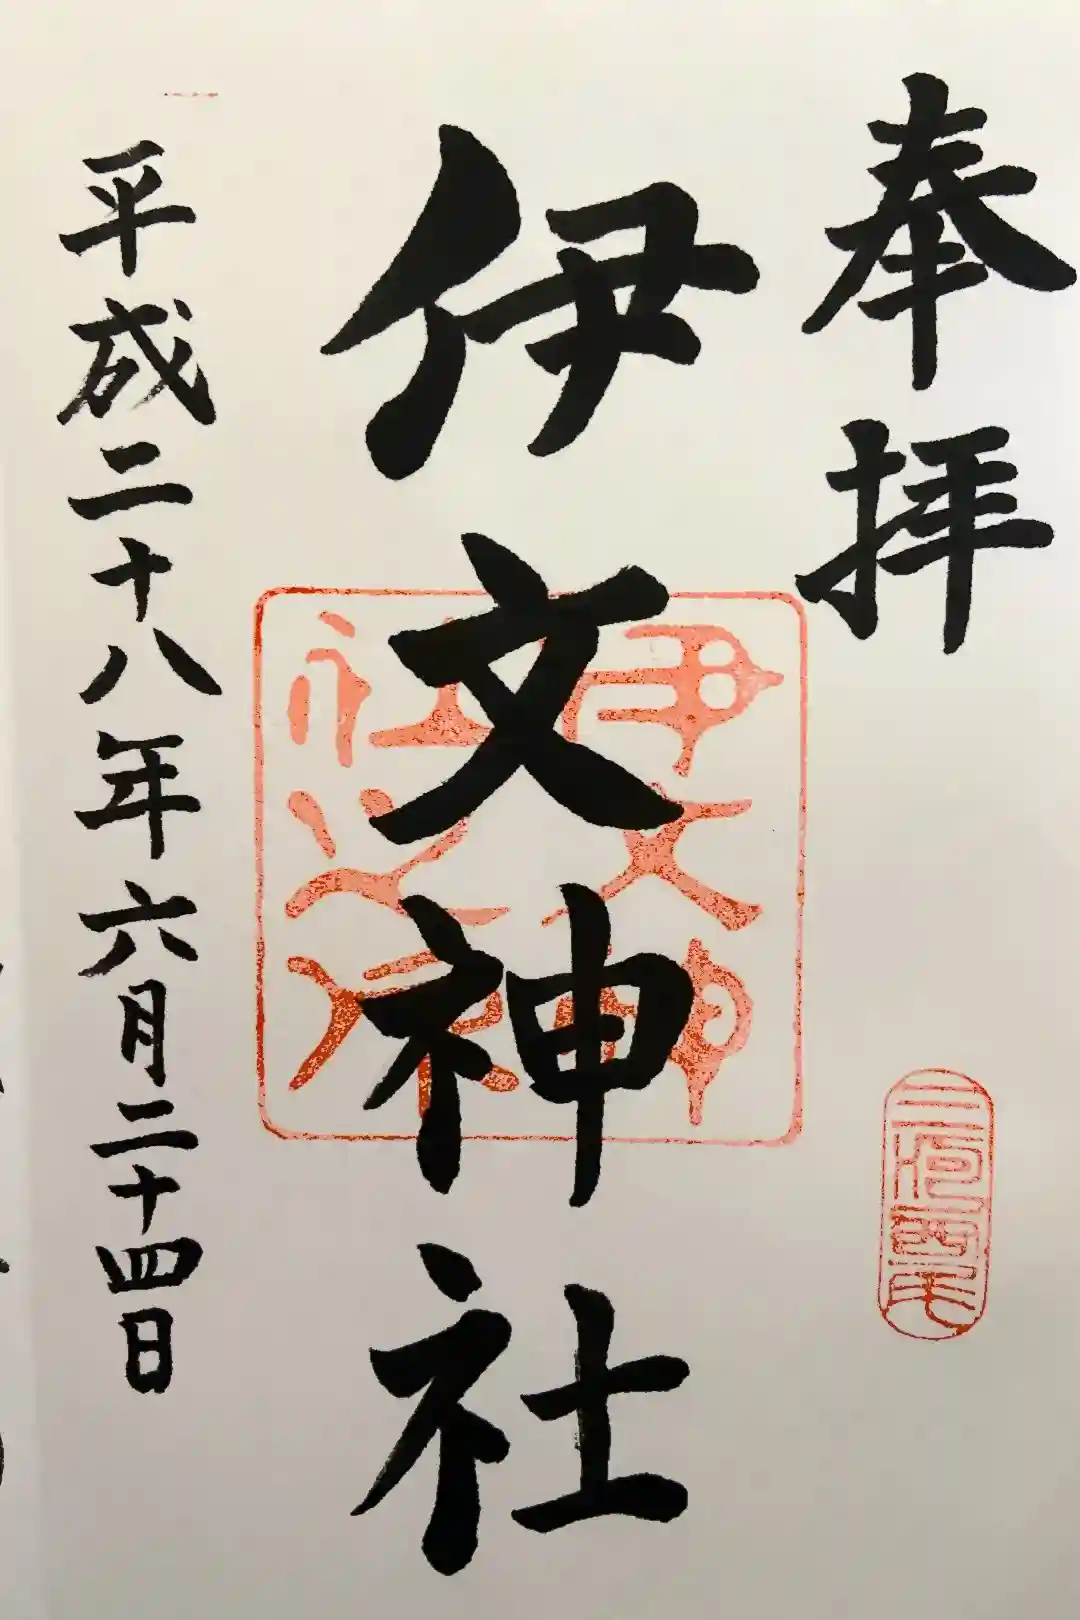 奉拝
三河西尾
伊文神社
伊文神社之印
平成二十八年六月二十四日